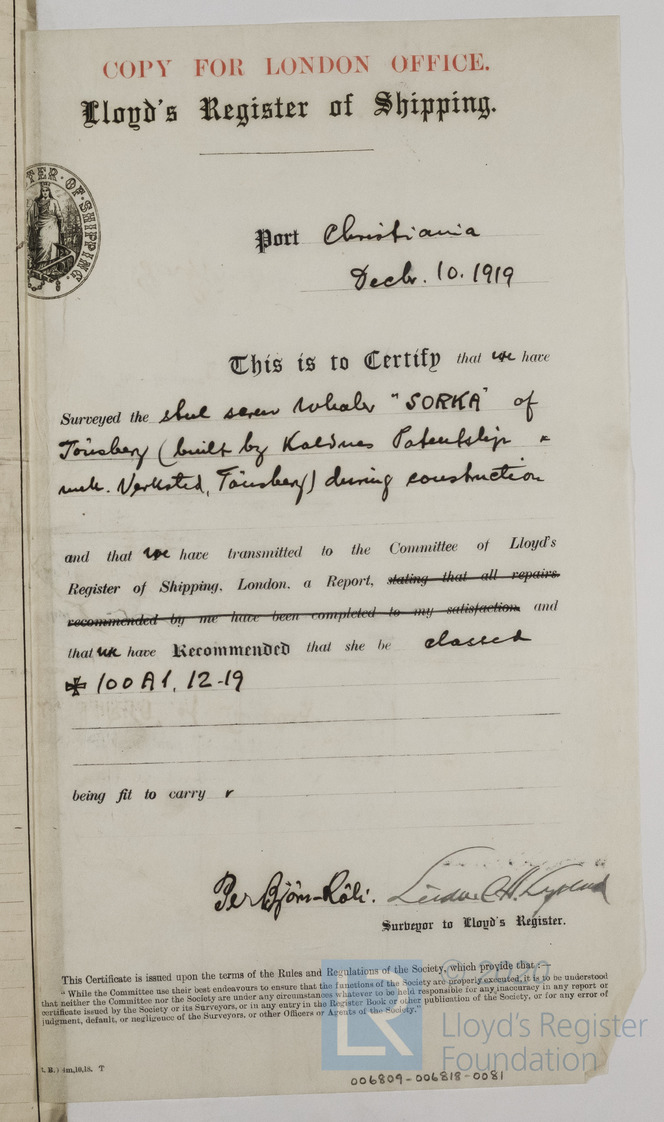 COPY FOR LONDON OFFICE.
Lloyd's Register of Shipping.
TER·OF·SHIPPING.
Port Christiania
Decbr. 10. 1919
This is to Certify that we have
Surveyed the steel screw Whaler "SORKA" of
Tönsberg (built by Kaldnes Patentslip &
mek. Verksted, Tönsberg) during construction
and that we have transmitted to the Committee of Lloyd's
Register of Shipping, London, a Report, stating that all repairs
recommended by me have been completed to my satisfaction and
that we have Recommended that she be classed
✠ 100A1, 12-19
being fit to carry
Per Björn-Röli.
Surveyor to Lloyd's Register.
This Certificate is issued upon the terms of the Rules and Regulations of the Society, which provide that :—
"While the Committee use their best endeavours to ensure that the functions of the Society are properly executed, it is to be understood
that neither the Committee nor the Society are under any circumstances whatever to be held responsible for any inaccuracy in any report or
certificate issued by the Society or its Surveyors, or in any entry in the Register Book or other publication of the Society, or for any error of
judgment, default, or negligence of the Surveyors, or other Officers or Agents of the Society."
© 2020
Lloyd's Register
Foundation
006809-006818-0081